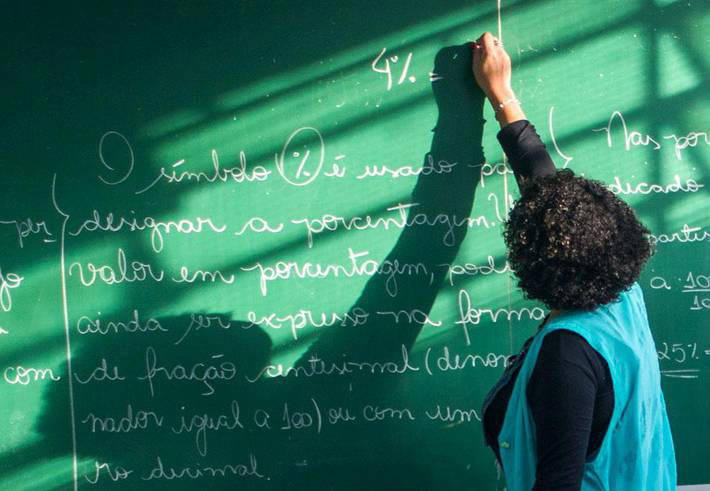 4% =
O símbolo % é usado
designar a porcentagem.
valor em porcentagem, pod
ainda ser expresso na forma
de fração centesimal (denom
nador igual a 100) ou com um
ro decimal.
por
com
Nas por
dicado
partir
a 10
25% =